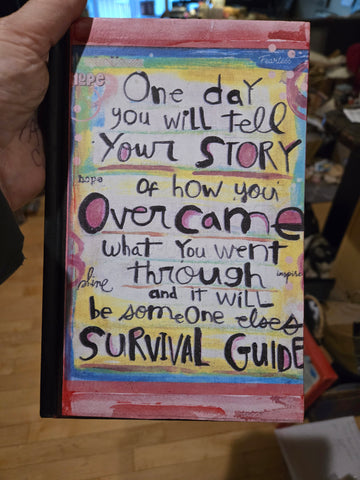 Fearless
hope
One day
you will tell
Your STORY
hope
of how you
Overcame
what you went
shine
through
inspire
and it will
be someone elses
SURVIVAL GUIDE